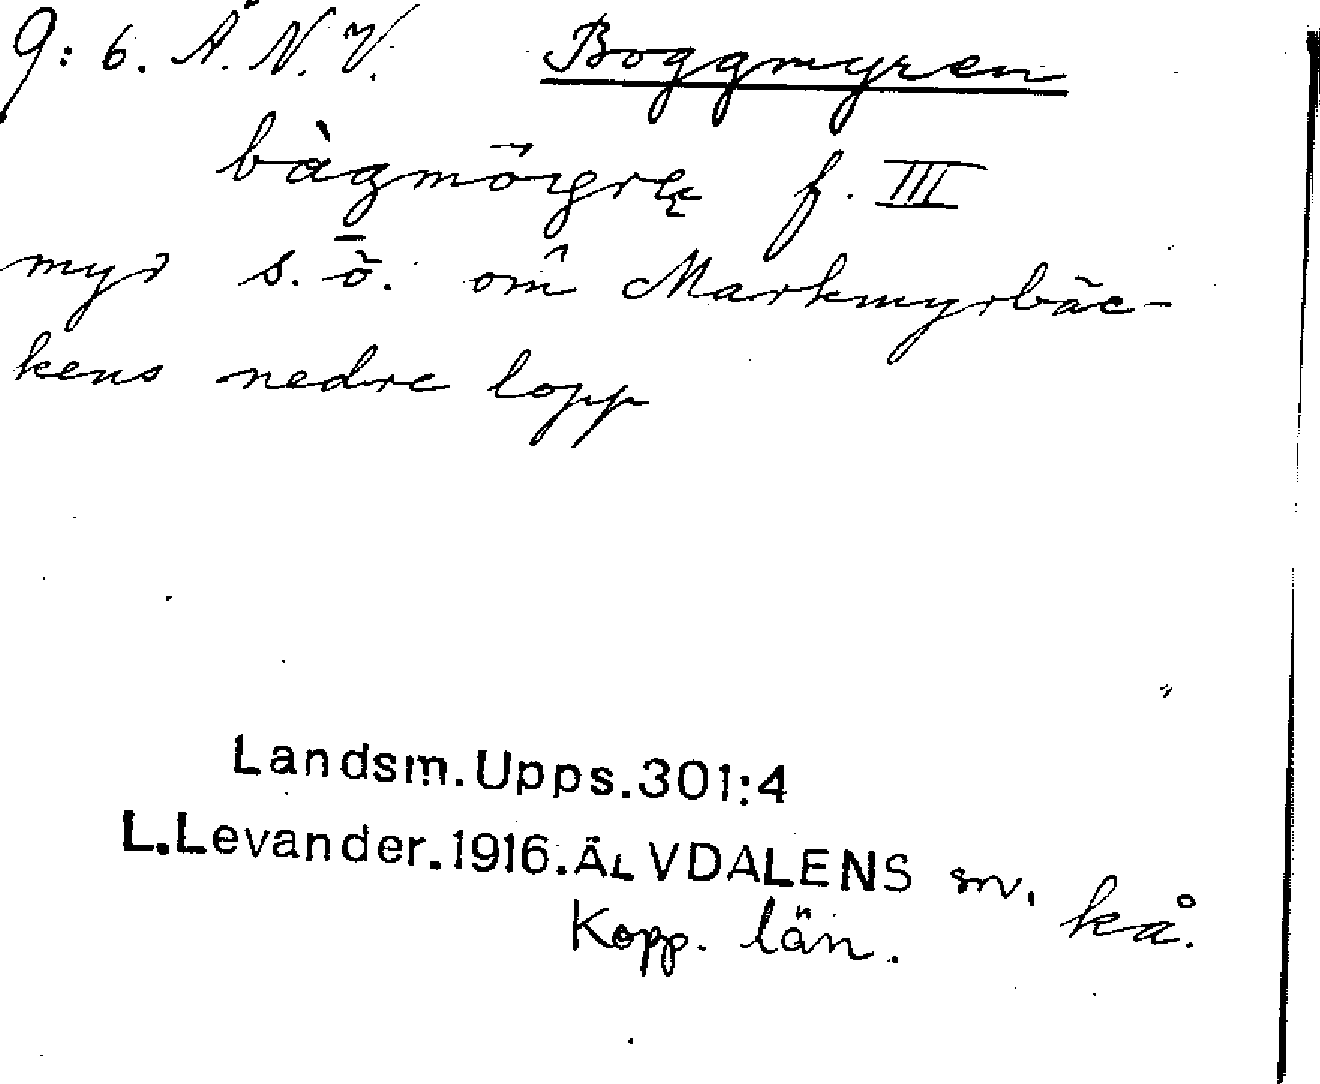 9:6. Ä.N.V. Boggmyren
f. III
myr s. ö. om Markmyrbäc-
kens nedre lopp
Landsm.Upps.301:4
L.Levander.1916.ÄLVDALENS sn. kå.
Kopp. län.